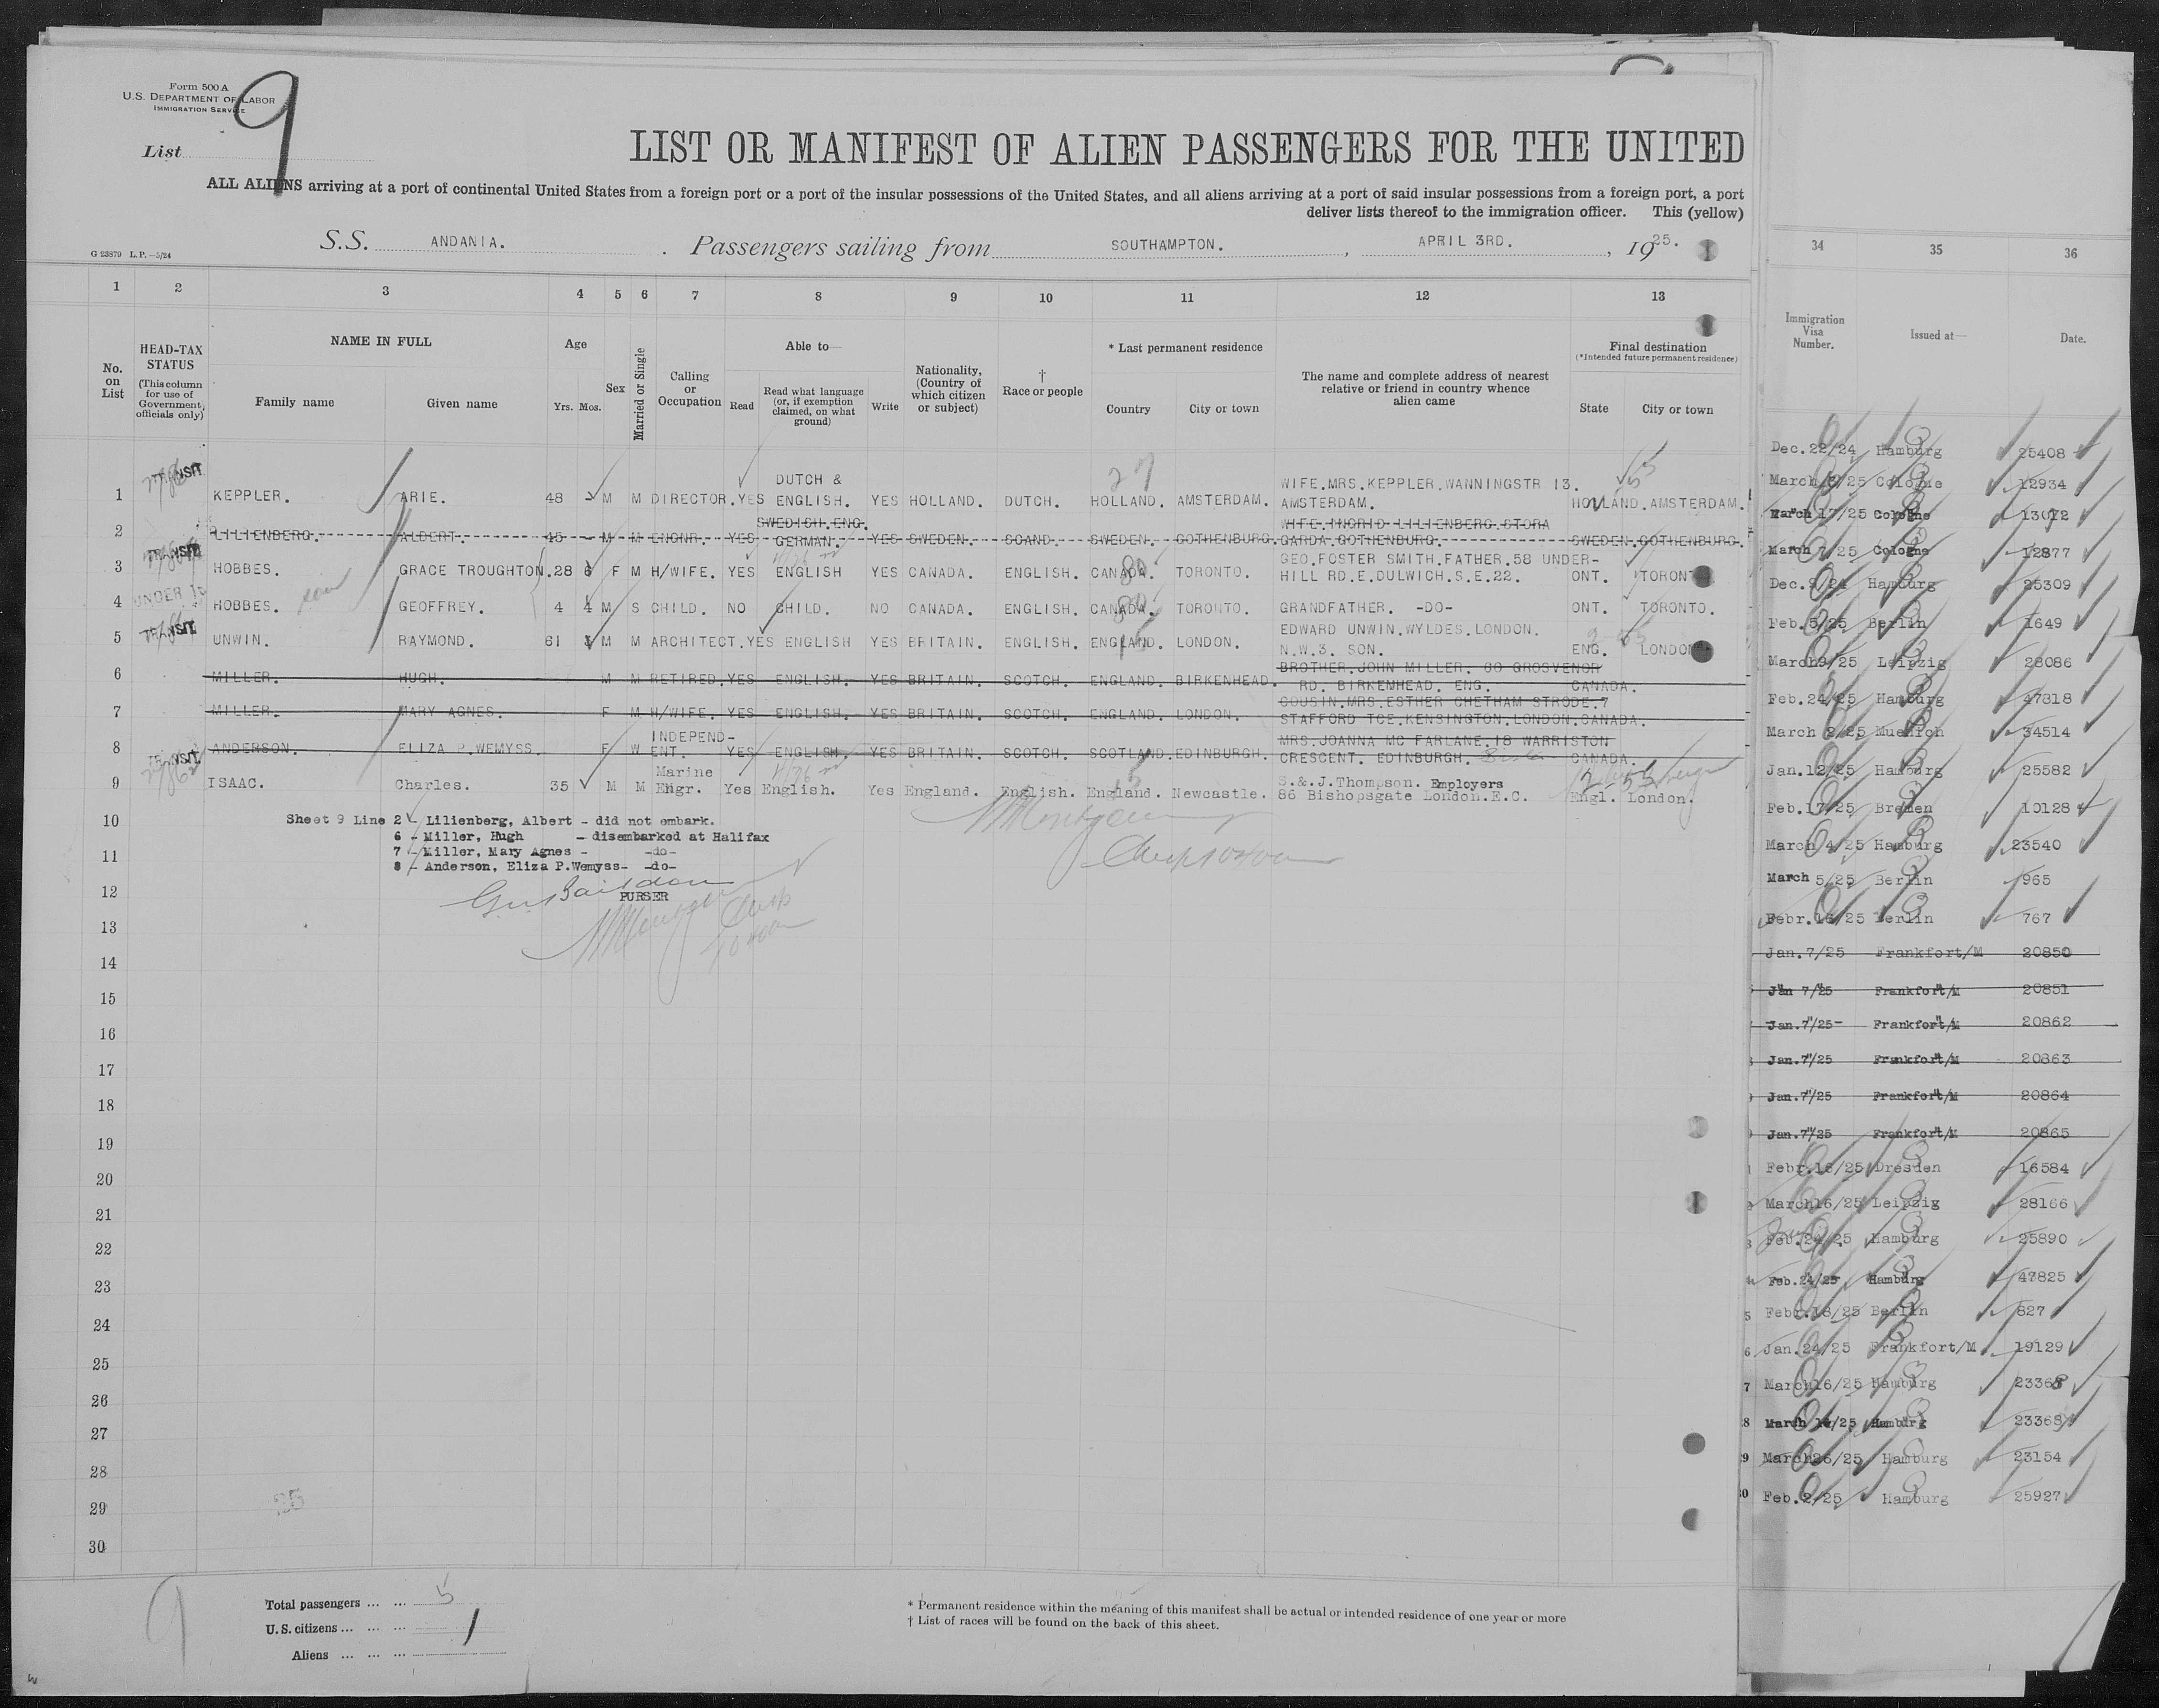 Form 500 A
U.S. DEPARTMENT OF LABOR
IMMIGRATION SERVICE
List 9
LIST OR MANIFEST OF ALIEN PASSENGERS FOR THE UNITED
ALL ALIENS arriving at a port of continental United States from a foreign port or a port of the insular possessions of the United States, and all aliens arriving at a port of said insular possessions from a foreign port, a port
deliver lists thereof to the immigration officer. This (yellow)
S.S. ANDANIA. Passengers sailing from SOUTHAMPTON. , APRIL 3RD. , 1925.
G 23879 L.P.—5/24
1 2 3 4 5 6 7 8 9 10 11 12 13
No. on List
HEAD-TAX STATUS
(This column for use of Government officials only)
NAME IN FULL
Family name Given name
Age
Yrs. Mos.
Sex
Married or Single
Calling or Occupation
Able to—
Read
Read what language (or, if exemption claimed, on what ground)
Write
Nationality, (Country of which citizen or subject)
† Race or people
* Last permanent residence
Country City or town
The name and complete address of nearest relative or friend in country whence alien came
Final destination
(*Intended future permanent residence)
State City or town
1 TRANSIT KEPPLER. ARIE. 48 - M M DIRECTOR. YES DUTCH & ENGLISH. YES HOLLAND. DUTCH. HOLLAND. AMSTERDAM. WIFE.MRS.KEPPLER.WANNINGSTR 13. AMSTERDAM. HOLLAND. AMSTERDAM.
2 LILIENBERG. ALBERT. 45 - M M ENGNR. YES SWEDISH.ENG. GERMAN. YES SWEDEN. SCAND. SWEDEN. GOTHENBURG. WIFE.INGRID LILIENBERG.STORA GARDA.GOTHENBURG. SWEDEN. GOTHENBURG.
3 TRANSIT HOBBES. GRACE TROUGHTON. 28 6 F M H/WIFE. YES ENGLISH YES CANADA. ENGLISH. CANADA. TORONTO. GEO.FOSTER SMITH.FATHER.58 UNDER-HILL RD.E.DULWICH.S.E.22. ONT. TORONTO
4 UNDER 16 HOBBES. GEOFFREY. 4 4 M S CHILD. NO CHILD. NO CANADA. ENGLISH. CANADA. TORONTO. GRANDFATHER. -DO- ONT. TORONTO.
5 TRANSIT UNWIN. RAYMOND. 61 M M ARCHITECT. YES ENGLISH YES BRITAIN. ENGLISH. ENGLAND. LONDON. EDWARD UNWIN.WYLDES.LONDON. N.W.3. SON. ENG. LONDON
6 MILLER. HUGH. M M RETIRED. YES ENGLISH. YES BRITAIN. SCOTCH. ENGLAND. BIRKENHEAD. BROTHER.JOHN MILLER. 80 GROSVENOR RD. BIRKENHEAD. ENG. CANADA.
7 MILLER. MARY AGNES. F M H/WIFE. YES ENGLISH. YES BRITAIN. SCOTCH. ENGLAND. LONDON. COUSIN.MRS.ESTHER CHETHAM STRODE.7 STAFFORD TCE.KENSINGTON.LONDON. CANADA.
8 ANDERSON. ELIZA P.WEMYSS. F W INDEPEND-ENT. YES ENGLISH. YES BRITAIN. SCOTCH. SCOTLAND. EDINBURGH. MRS.JOANNA MC FARLANE.18 WARRISTON CRESCENT. EDINBURGH. CANADA.
9 TRANSIT ISAAC. Charles. 35 M M Marine Engr. Yes English. Yes England. English. England. Newcastle. S.&.J.Thompson. Employers 86 Bishopsgate London.E.C. Engl. London.
10 Sheet 9 Line 2 - Lilienberg, Albert - did not embark.
6 - Miller, Hugh - disembarked at Halifax
11 7 - Miller, Mary Agnes - -do-
8 - Anderson, Eliza P.Wemyss- -do-
12 PURSER
13
14
15
16
17
18
19
20
21
22
23
24
25
26
27
28
29
30
25
9
Total passengers ... ... 5
U.S. citizens ... ... ...
Aliens ... ... ...
* Permanent residence within the meaning of this manifest shall be actual or intended residence of one year or more
† List of races will be found on the back of this sheet.
34 35 36
Immigration Visa Number. Issued at— Date.
Dec.22/24 Hamburg 25408
March 3/25 Cologne 12934
March 17/25 Cologne 13072
March 7/25 Cologne 12877
Dec.9/24 Hamburg 25309
Feb.5/25 Berlin 1649
March9/25 Leipzig 28086
Feb.24/25 Hamburg 47818
March 2/25 Muenich 34514
Jan.12/25 Hamburg 25582
Feb.17/25 Bremen 10128
March 4/25 Hamburg 23540
March 5/25 Berlin 965
Febr.16/25 Berlin 767
Jan.7/25 Frankfort/M 20850
Jan 7/25 Frankfort/M 20851
Jan.7/25- Frankfort/M 20862
Jan.7/25 Frankfort/M 20863
Jan.7/25 Frankfort/M 20864
Jan.7/25 Frankfort/M 20865
Febr.18/25 Dresden 16584
March16/25 Leipzig 28166
Feb.24/25 Hamburg 25890
Feb.24/25 Hamburg 47825
Febr.18/25 Berlin 827
Jan.24/25 Frankfort/M 19129
March16/25 Hamburg 23368
March 16/25 Hamburg 23369
March26/25 Hamburg 23154
Feb.2/25 Hamburg 25927